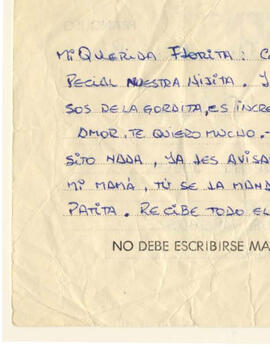 Mi Querida Florita: C
pecial nuestra hijita. Y
sos de la gordita, es incre
amor, te quiero mucho.-
sito nada, ya les avisa
mi mamá, tú se la mand
Patita. Recibe todo el
NO DEBE ESCRIBIRSE MA